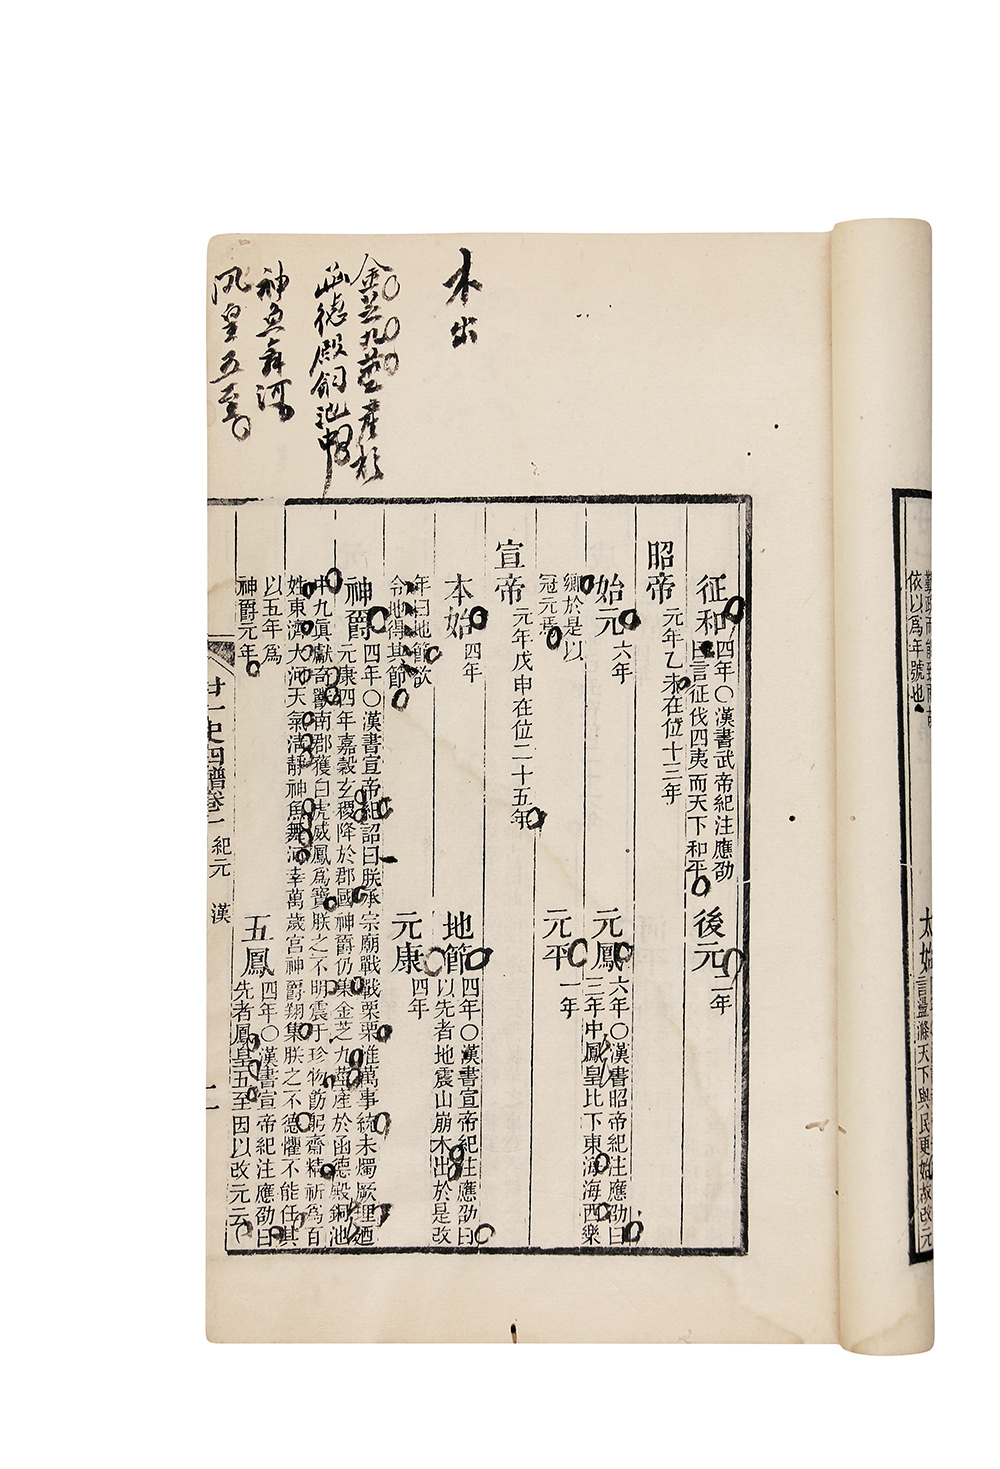 木出
金芝九莖產於
函德殿銅池中
神魚舞河
鳳皇五至
依以爲年號也
太始
言盪滌天下與民更始故改元
征和
四年〇漢書武帝紀注應劭
曰言征伐四夷而天下和平
後元
二年
昭帝
元年乙未在位十三年
始元
六年
元鳳
六年〇漢書昭帝紀注應劭曰
三年中鳳皇比下東海海西樂
鄉於是以
冠元焉
元平
一年
宣帝
元年戊申在位二十五年
本始
四年
地節
四年〇漢書宣帝紀注應劭曰
以先者地震山崩水出於是改
年曰地節欲
令地得其節
元康
四年
神爵
四年〇漢書宣帝紀詔曰朕承宗廟戰戰栗栗惟萬事統未燭厥理廼
元康四年嘉穀玄稷降於郡國神爵仍集金芝九莖產於函德殿銅池
中九眞獻奇獸南郡獲白虎威鳳爲寶朕之不明震于珍物飭躬齋精祈爲百
姓東濟大河天氣清靜神魚舞河幸萬歲宮神爵翔集朕之不德懼不能任其
以五年爲
神爵元年
五鳳
四年〇漢書宣帝紀注應劭曰
先者鳳皇五至因以改元云
廿一史四譜卷一
紀元
漢
二